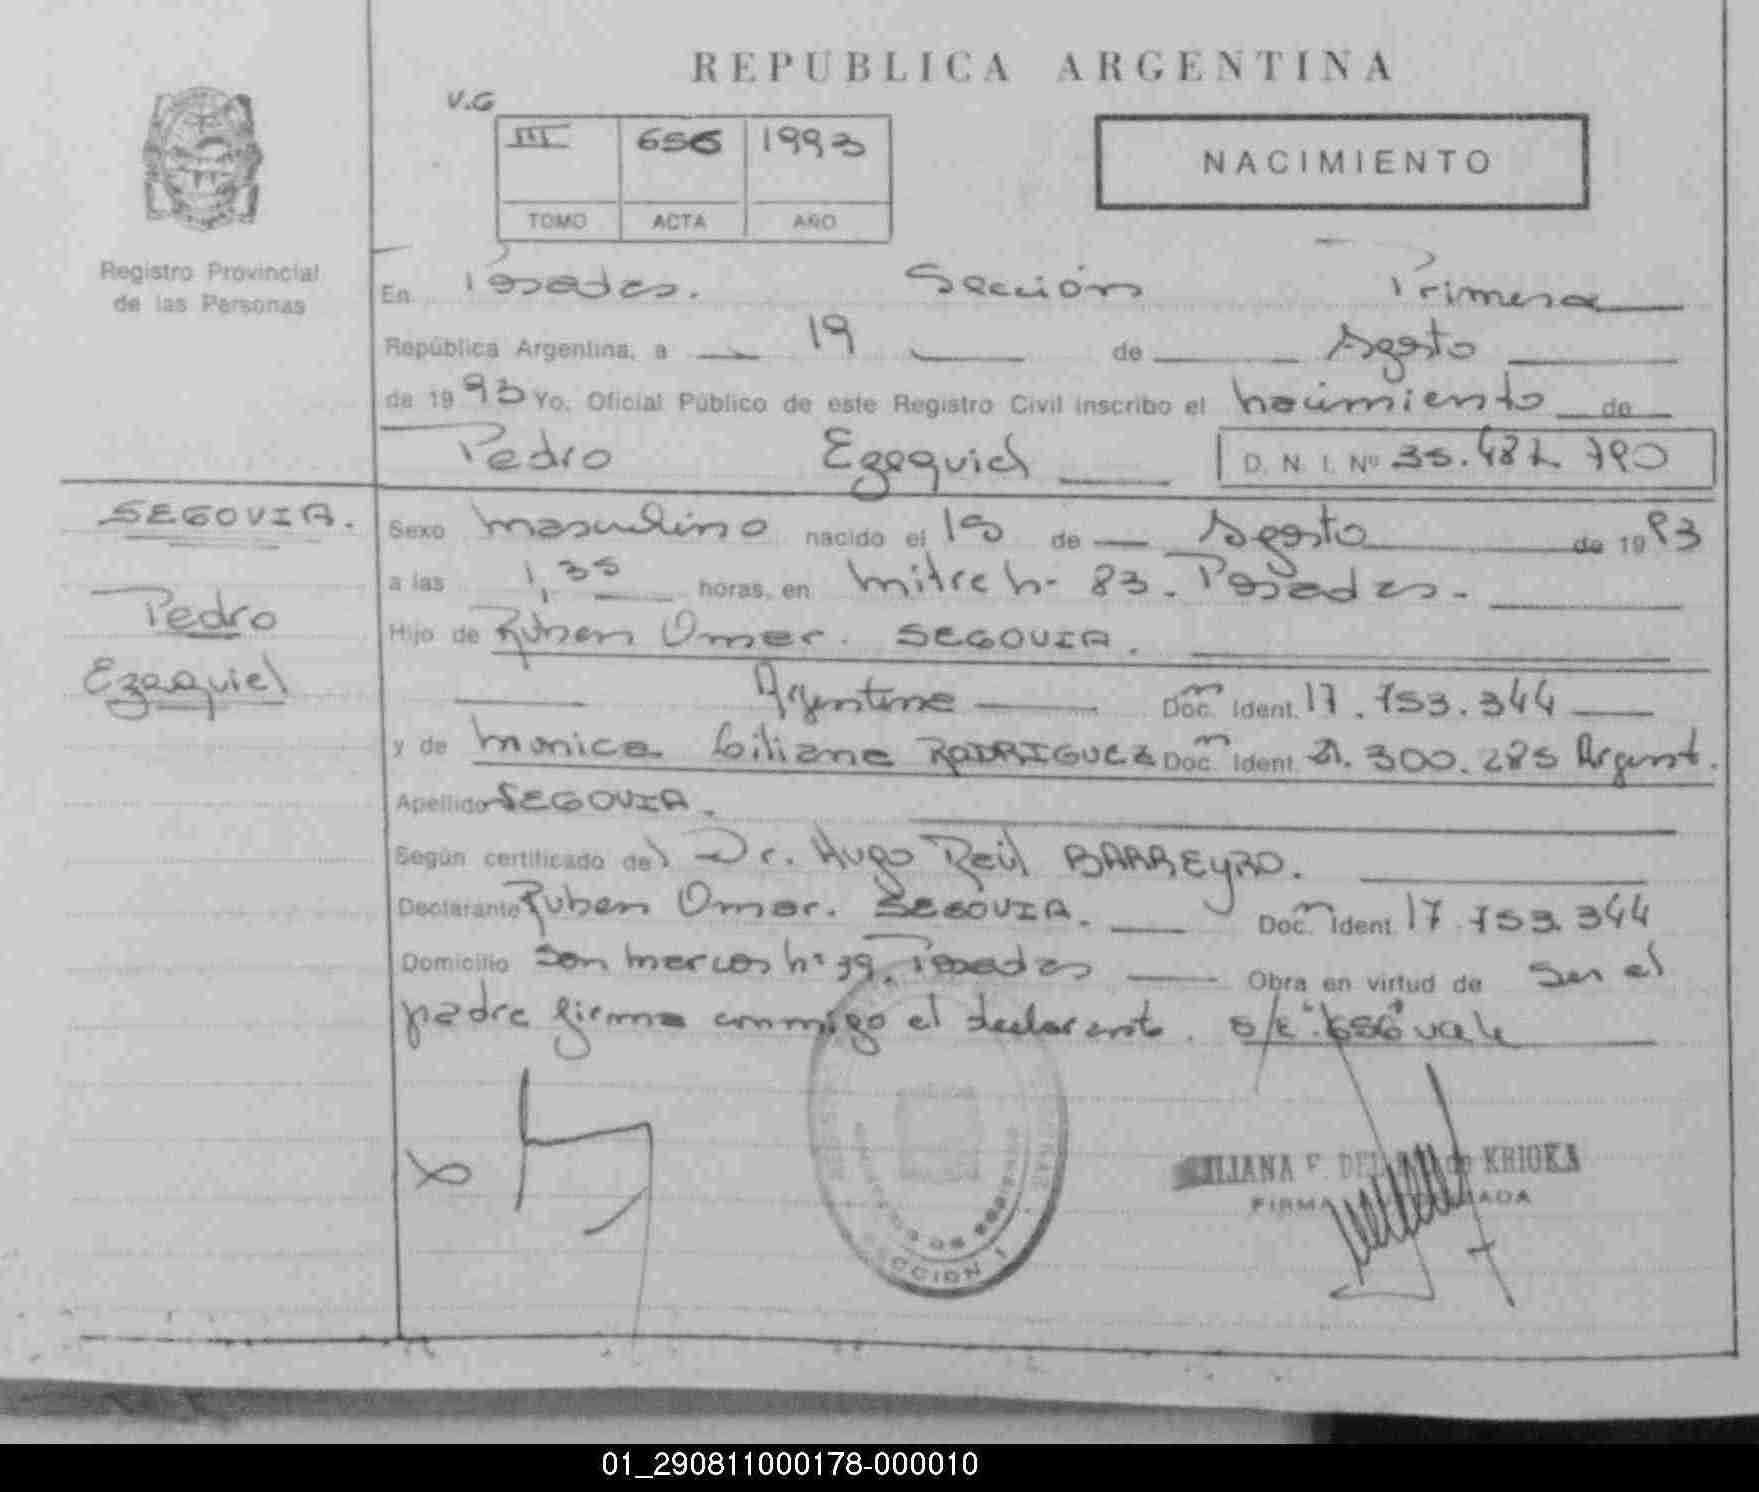 REPUBLICA ARGENTINA
V.G
III 656 1993
TOMO ACTA AÑO
NACIMIENTO
Registro Provincial
de las Personas
En Posadas. Sección Primera
República Argentina, a 19 de Agosto
de 1993 Yo, Oficial Público de este Registro Civil inscribo el nacimiento de
Pedro Ezequiel D. N. I. Nº 35.487 790
SEGOVIA.
Pedro
Ezequiel
Sexo masculino nacido el 15 de Agosto de 1993
a las 1,35 horas, en Mitre nº 83. Posadas.
Hijo de Ruben Omar. SEGOVIA.
Argentino Doc. Ident. 17.753.344
y de Monica Liliana RODRIGUEZ Doc. Ident. 21.300.285 Argent.
Apellido SEGOVIA.
Según certificado del Dr. Hugo Raúl BARREYRO.
Declarante Ruben Omar. SEGOVIA. Doc. Ident. 17.753.344
Domicilio San Marcos nº 39. Posadas Obra en virtud de ser el
padre firma conmigo el declarante. S/E "656" vale
MINISTERIO DE GOBIERNO
SECCION 1
LILIANA F. KRIOKA
FIRMA
01_290811000178-000010